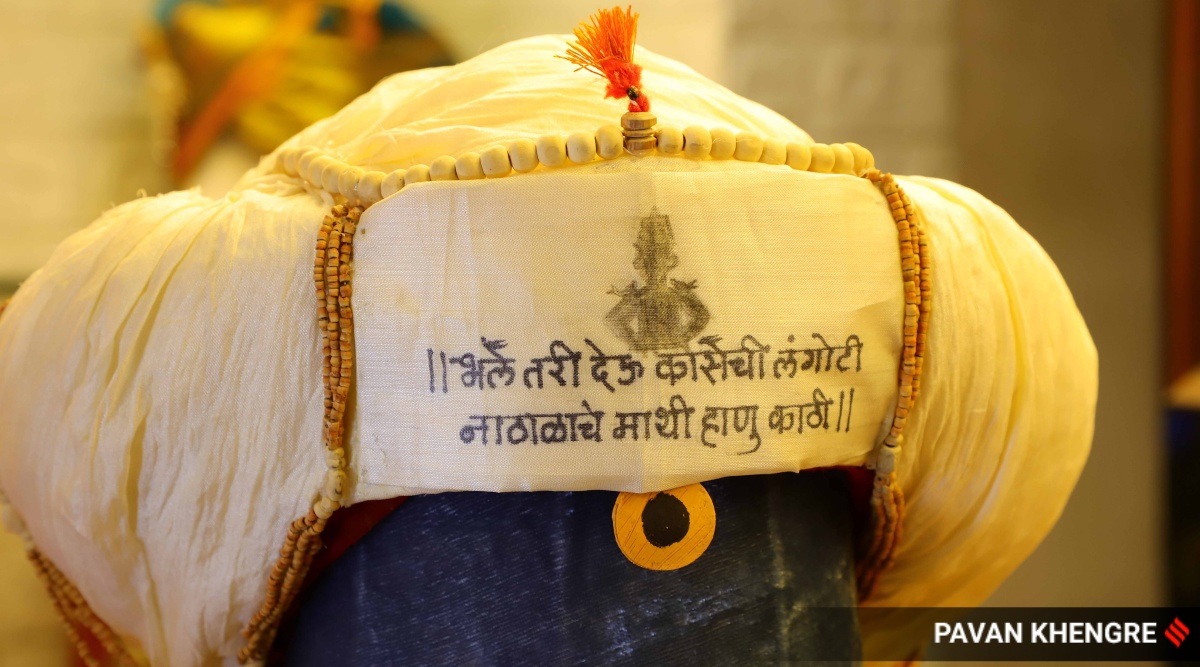 ||भलें तरी देऊ कासेंची लंगोटी
नाठाळाचे माथी हाणु काठी||
PAVAN KHENGRE